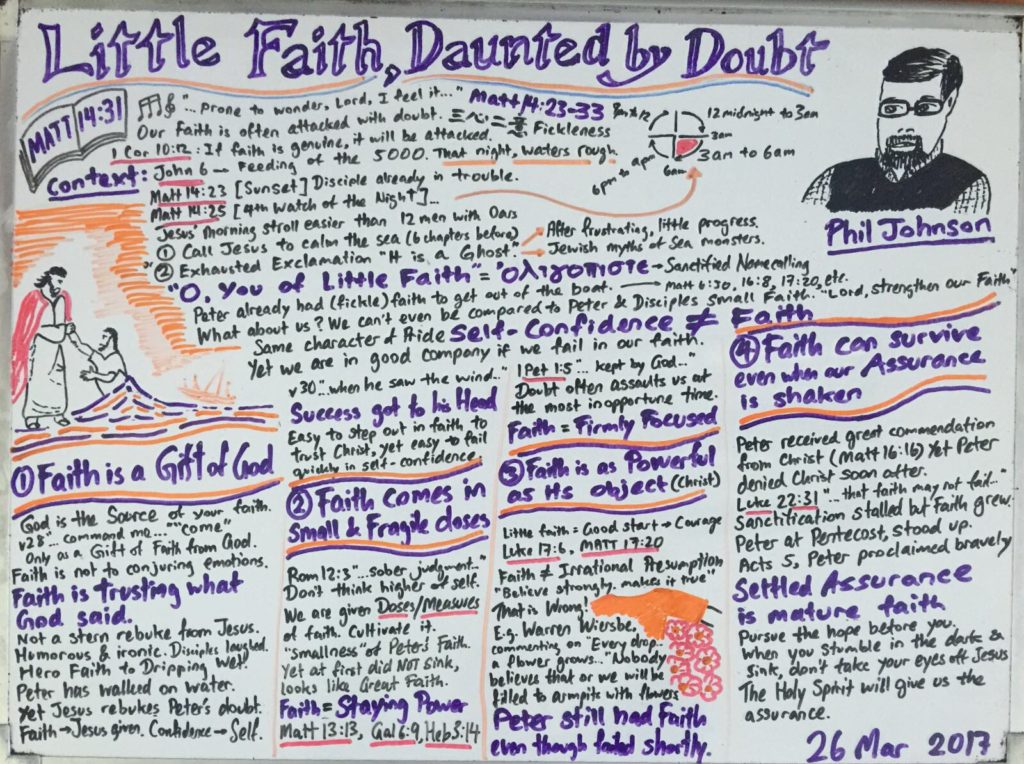 Little Faith, Daunted by Doubt
MATT 14:31
"... prone to wonder, Lord, I feel it..." Matt 14:23-33
Our Faith is often attacked with doubt. 三心二意 Fickleness
1 Cor 10:12: If faith is genuine, it will be attacked.
Context: John 6 – Feeding of the 5000. That night, waters rough
Matt 14:23 [Sunset] Disciple already in trouble.
Matt 14:25 [4th Watch of the Night]...
12 midnight to 3am
3am
3am to 6am
6am
6pm to 9pm
Phil Johnson
Jesus' morning stroll easier than 12 men with Oars
① Call Jesus to calm the sea (6 chapters before)
② Exhausted Exclamation "It is a Ghost"
After frustrating, little progress.
Jewish myths of Sea monsters.
"O, You of Little Faith" = "ολιγοπιστε → Sanctified Namecalling
Peter already had (fickle) faith to get out of the boat. — Matt 6:30, 16:8, 17:20, etc.
What about us? We can't even be compared to Peter & Disciples Small Faith. "Lord, strengthen our Faith"
Same character of Pride Self-Confidence ≠ Faith
Yet we are in good company if we fail in our faith.
① Faith is a Gift of God
God is the Source of your faith.
v28 "... command me..." "come"
Only as a Gift of Faith from God.
Faith is not to conjuring emotions.
Faith is Trusting what
God said.
Not a stern rebuke from Jesus.
Humorous & ironic. Disciples laughed.
Hero Faith to Dripping Wet
Peter has walked on water.
Yet Jesus rebukes Peter's doubt.
Faith → Jesus given. Confidence → Self.
v30 "when he saw the wind..."
Success got to his Head
Easy to step out in faith to
trust Christ, yet easy to fail
quickly in self-confidence.
② Faith comes in
Small & Fragile doses
Rom 12:3 "...sober judgment..."
Don't think higher of self.
We are given Doses/Measures
of faith. Cultivate it.
"Smallness" of Peter's Faith.
Yet at first did NOT sink,
looks like Great Faith.
Faith = Staying Power
Matt 13:13, Gal 6:9, Heb 5:14
1 Pet 1:5 "... kept by God..."
Doubt often assaults us at
the most inopportune time.
Faith = Firmly Focused
③ Faith is as Powerful
as its object (Christ)
Little faith = Good start → Courage
Luke 17:6, MATT 17:20
Faith ≠ Irrational Presumption
"Believe strongly, makes it true"
That is Wrong!
E.g. Warren Wiersbe,
commenting on "Every drop...
a flower grows..." "Nobody
believes that or we will be
filled to armpits with flowers
Peter still had Faith
even though failed shortly.
④ Faith can survive
even when our Assurance
is shaken
Peter received great commendation
from Christ (Matt 16:16) Yet Peter
denied Christ soon after.
Luke 22:31 "...that faith may not fail..."
Sanctification stalled but Faith grew.
Peter at Pentecost, stood up.
Acts 5, Peter proclaimed bravely
Settled Assurance
is mature faith
Pursue the hope before you,
When you stumble in the dark &
Sink, don't take your eyes off Jesus
The Holy Spirit will give us the
assurance.
26 Mar 2017